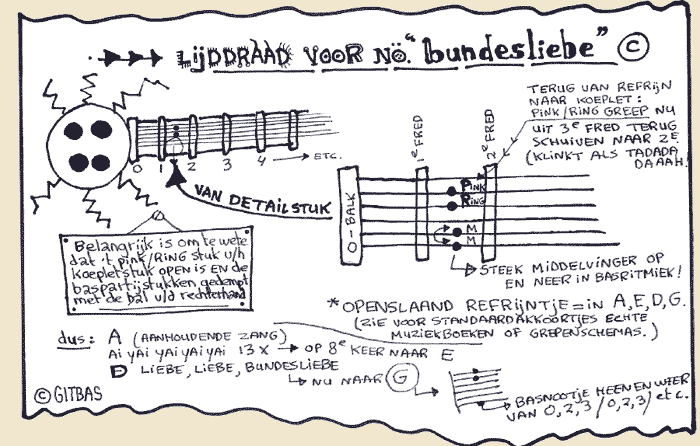 LIJDDRAAD VOOR NÖ. "bundesliebe" ©
TERUG VAN REFRIJN
NAAR KOEPLET:
PINK/RING GREEP NU
UIT 3e FRED TERUG
SCHUIVEN NAAR 2E.
(KLINKT ALS TADADA
DAAAH.
1e FRED
2e FRED
0 1 2 3 4 → ETC.
VAN DETAILSTUK
O-BALK
PINK
RING
M
M
Belangrijk is om te wete
dat 't pink/RING stuk v/h
koepletstuk OPEN is EN de
baspartijstukken gedempt
met de bal v/d rechterhand
STEEK MIDDELVINGER OP
EN NEER IN BASRITMIEK!
*OPENSLAAND REFRIJNTJE = IN A, E, D, G.
(ZIE VOOR STANDAARDAKKOORTJES ECHTE
MUZIEKBOEKEN OF GREPENSCHEMAS.)
dus: A (AANHOUDENDE ZANG)
Ai YAi YAi YAi YAi 13 X → OP 8e KEER NAAR E
D LIEBE, LIEBE, BUNDESLIEBE
NU NAAR G
BASNOOTJE HEEN EN WEER
VAN 0,2,3/0,2,3/ etc.
© GITBAS